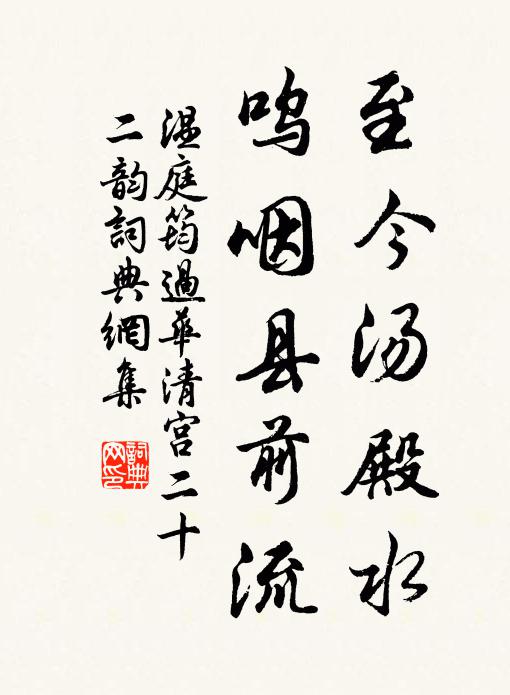 至今汤殿水
呜咽县前流
温庭筠過華清宫二十
二韵詞典網集
詞典
网印